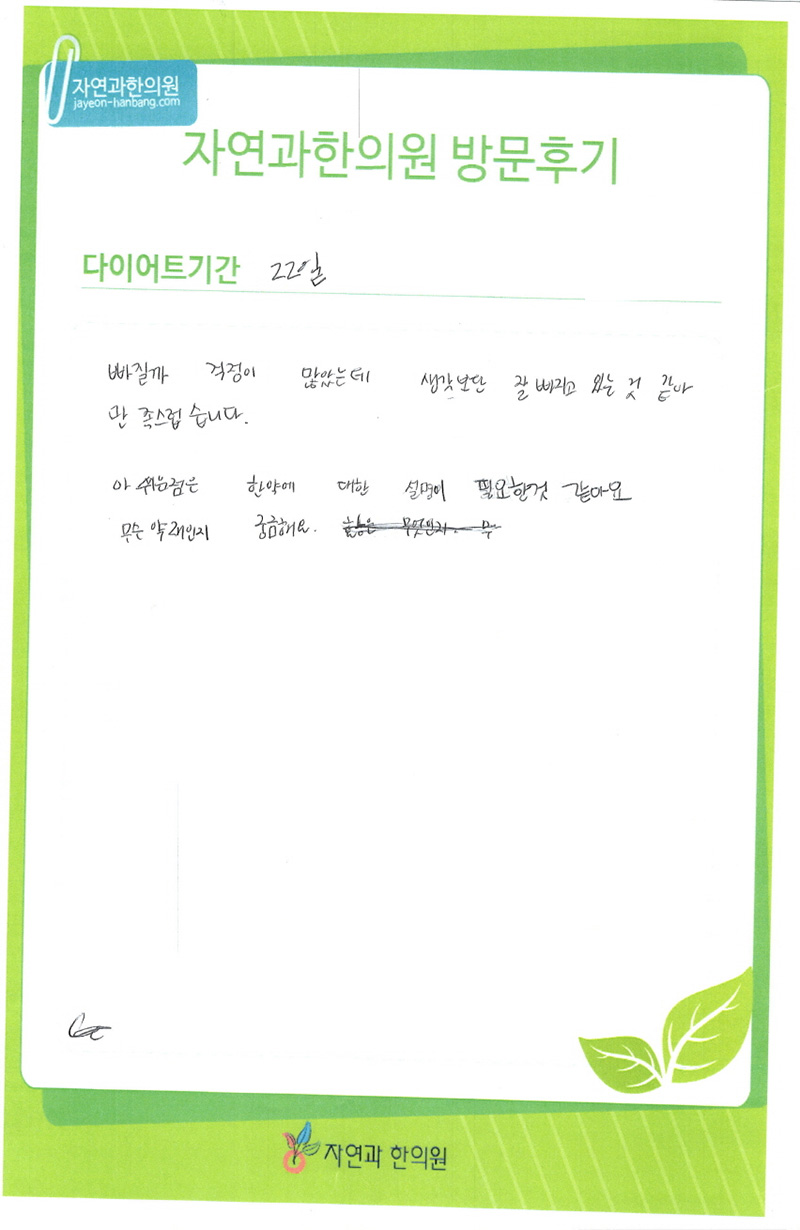 자연과한의원
jayeon-hanbang.com
자연과한의원 방문후기
다이어트기간 22일
빠질까 걱정이 많았는데 생각보단 잘 빠지고 있는 것 같아
만족스럽습니다.
아쉬운점은 한약에 대한 설명이 필요한것 같아요
무슨 약재인지 궁금해요.
자연과 한의원